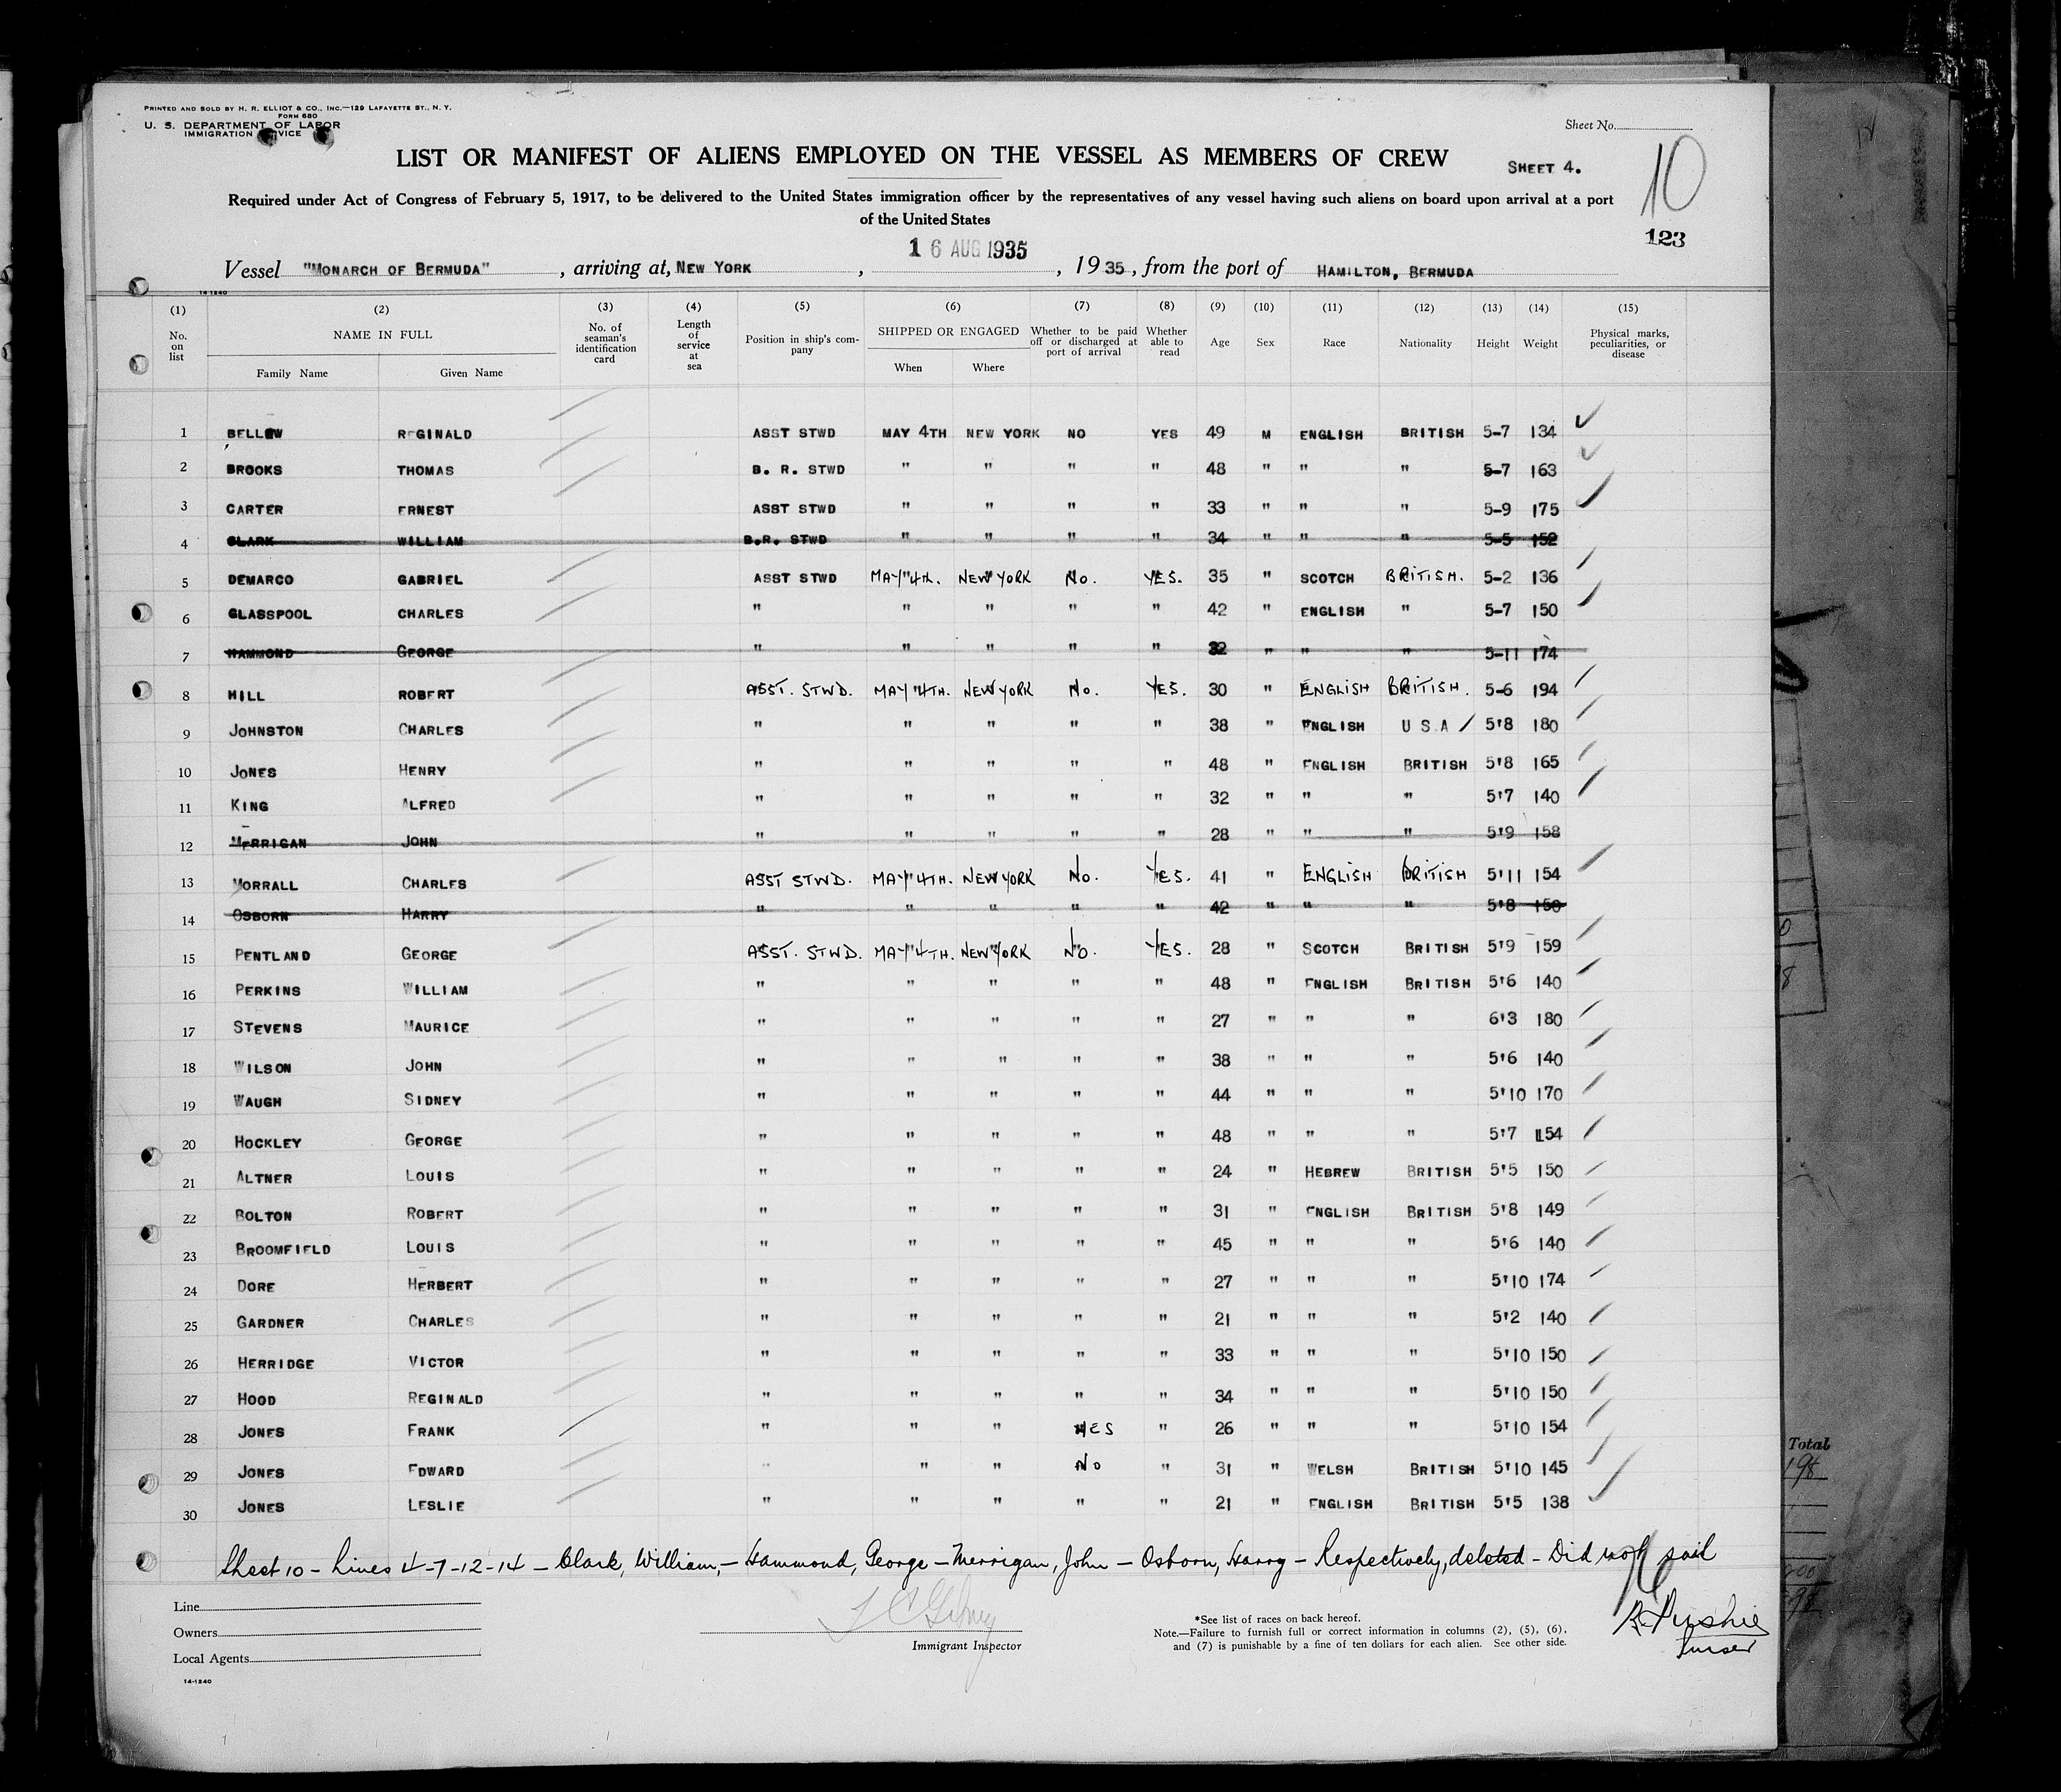 PRINTED AND SOLD BY H. R. ELLIOT & CO., INC.—129 LAFAYETTE ST., N. Y.
FORM 680
U. S. DEPARTMENT OF LABOR
IMMIGRATION SERVICE
Sheet No.
LIST OR MANIFEST OF ALIENS EMPLOYED ON THE VESSEL AS MEMBERS OF CREW
SHEET 4.
10
Required under Act of Congress of February 5, 1917, to be delivered to the United States immigration officer by the representatives of any vessel having such aliens on board upon arrival at a port
of the United States
123
16 AUG 1935
Vessel "MONARCH OF BERMUDA", arriving at, NEW YORK, , 1935, from the port of HAMILTON, BERMUDA
14-1240
(1) (2) (3) (4) (5) (6) (7) (8) (9) (10) (11) (12) (13) (14) (15)
No. on list NAME IN FULL No. of seaman's identification card Length of service at sea Position in ship's company SHIPPED OR ENGAGED Whether to be paid off or discharged at port of arrival Whether able to read Age Sex Race Nationality Height Weight Physical marks, peculiarities, or disease
Family Name Given Name When Where
1 BELLEW REGINALD ASST STWD MAY 4TH NEW YORK NO YES 49 M ENGLISH BRITISH 5-7 134
2 BROOKS THOMAS B. R. STWD " " " " 48 " " " 5-7 163
3 CARTER ERNEST ASST STWD " " " " 33 " " " 5-9 175
4 CLARK WILLIAM B.R. STWD " " " " 34 " " " 5-5 152
5 DEMARCO GABRIEL ASST STWD MAY 4TH. NEW YORK NO. YES. 35 " SCOTCH BRITISH. 5-2 136
6 GLASSPOOL CHARLES " " " " " 42 " ENGLISH " 5-7 150
7 HAMMOND GEORGE " " " " " 32 " " " 5-11 174
8 HILL ROBERT ASST. STWD. MAY 4TH. NEW YORK NO. YES. 30 " ENGLISH BRITISH. 5-6 194
9 JOHNSTON CHARLES " " " " " 38 " ENGLISH U S A / 5'8 180
10 JONES HENRY " " " " " 48 " ENGLISH BRITISH 5'8 165
11 KING ALFRED " " " " " 32 " " " 5'7 140
12 MERRIGAN JOHN " " " " " 28 " " " 5'9 158
13 MORRALL CHARLES ASST STWD. MAY 4TH. NEW YORK NO. YES. 41 " ENGLISH BRITISH 5'11 154
14 OSBORN HARRY " " " " " 42 " " " 5'8 150
15 PENTLAND GEORGE ASST. STWD. MAY 4TH. NEW YORK NO. YES. 28 " SCOTCH BRITISH 5'9 159
16 PERKINS WILLIAM " " " " " 48 " ENGLISH BRITISH 5'6 140
17 STEVENS MAURICE " " " " " 27 " " " 6'3 180
18 WILSON JOHN " " " " " 38 " " " 5'6 140
19 WAUGH SIDNEY " " " " " 44 " " " 5'10 170
20 HOCKLEY GEORGE " " " " " 48 " " " 5'7 154
21 ALTNER LOUIS " " " " " 24 " HEBREW BRITISH 5'5 150
22 BOLTON ROBERT " " " " " 31 " ENGLISH BRITISH 5'8 149
23 BROOMFIELD LOUIS " " " " " 45 " " " 5'6 140
24 DORE HERBERT " " " " " 27 " " " 5'10 174
25 GARDNER CHARLES " " " " " 21 " " " 5'2 140
26 HERRIDGE VICTOR " " " " " 33 " " " 5'10 150
27 HOOD REGINALD " " " " " 34 " " " 5'10 150
28 JONES FRANK " " " YES " 26 " " " 5'10 154
29 JONES EDWARD " " " NO " 31 " WELSH BRITISH 5'10 145
30 JONES LESLIE " " " " " 21 " ENGLISH BRITISH 5'5 138
Sheet 10 - Lines 4-7-12-14 - Clark, William, - Hammond, George - Merrigan, John - Osborn, Harry - Respectively, deleted - Did not sail
Line
Owners
Local Agents
Immigrant Inspector
*See list of races on back hereof.
Note.—Failure to furnish full or correct information in columns (2), (5), (6),
and (7) is punishable by a fine of ten dollars for each alien. See other side.
Purser
14-1240
Total
198